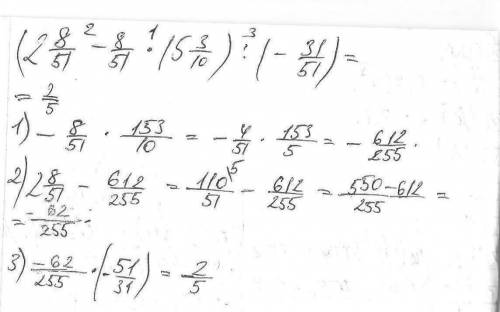 (2 8/51 ² - 8/51 ·¹ (5 3/10) :³ (- 31/51) =
= 2/5
1) - 8/51 · 153/10 = - 4/51 · 153/5 = - 612/255 .
2) 2 8/51 - 612/255 = 110⁵/51 - 612/255 = 550-612/255 =
= -62/255
3) -62/255 · (- 51/31) = 2/5